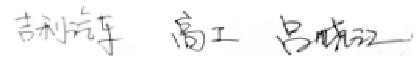 吉利汽车 高工 吕晓江